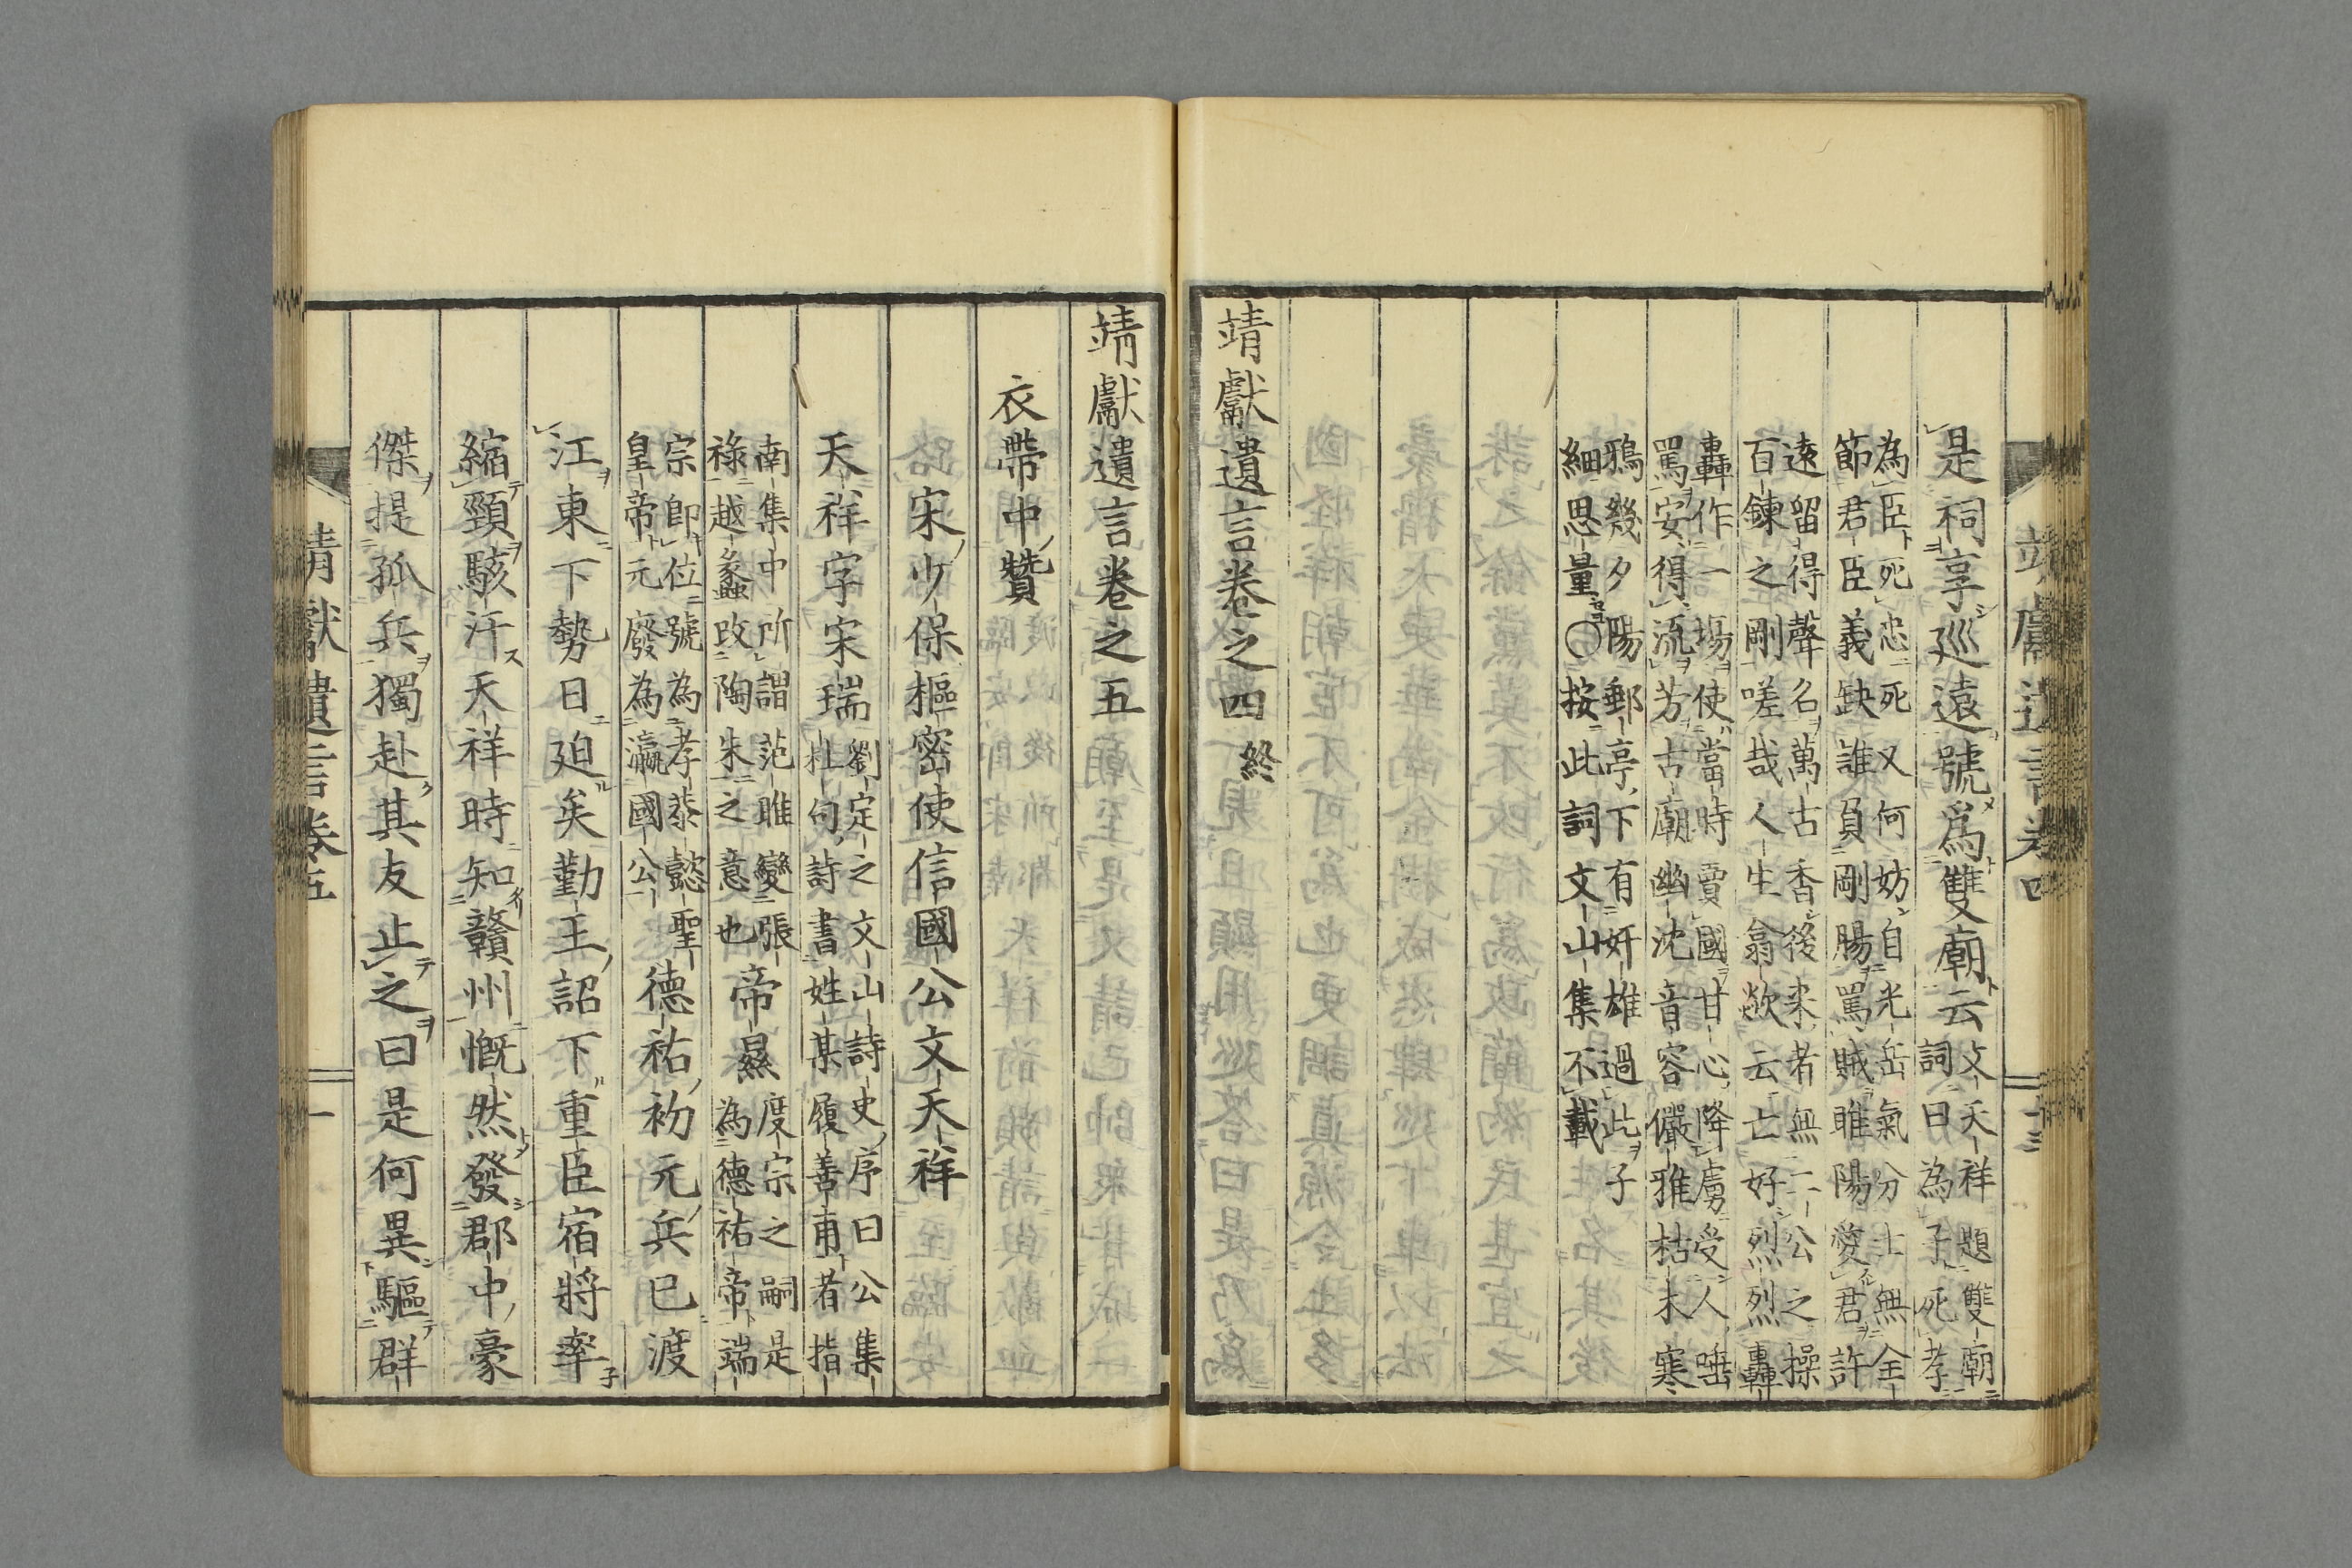 靖獻遺言卷四 十三
是祠享巡遠號爲雙廟云
文天祥題雙廟
詞曰為子死孝
為臣死忠死又何妨自光岳氣分士無全
節君臣義缺誰負剛腸罵賊睢陽愛君許
遠留得聲名萬古香後来者無二公之操
百鍊之剛嗟哉人生翕歘云亡好烈烈轟
轟作一塲使當時賣國甘心降虜受人唾
罵安得流芳古廟幽沈音容儼雅枯木寒
鴉幾夕陽郵亭下有奸雄過此子
細思量〇按此詞文山集不載
靖獻遺言卷之四 終
靖獻遺言卷之五
衣帶中贊
宋少保樞密使信國公文天祥
天祥字宋瑞
劉定之文山詩史序曰公集
杜句詩書姓某履善甫者指
南集中所謂范雎變張
祿越蠡改陶朱之意也
帝㬎
度宗之嗣是
為德祐帝端
宗即位號為孝恭懿聖
皇帝元廢為瀛國公
德祐初元兵已渡
江東下勢日迫矣勤王詔下重臣宿將率
縮頸駭汗天祥時知贛州慨然發郡中豪
傑提孤兵獨赴其友止之曰是何異驅群
靖獻遺言卷五 一